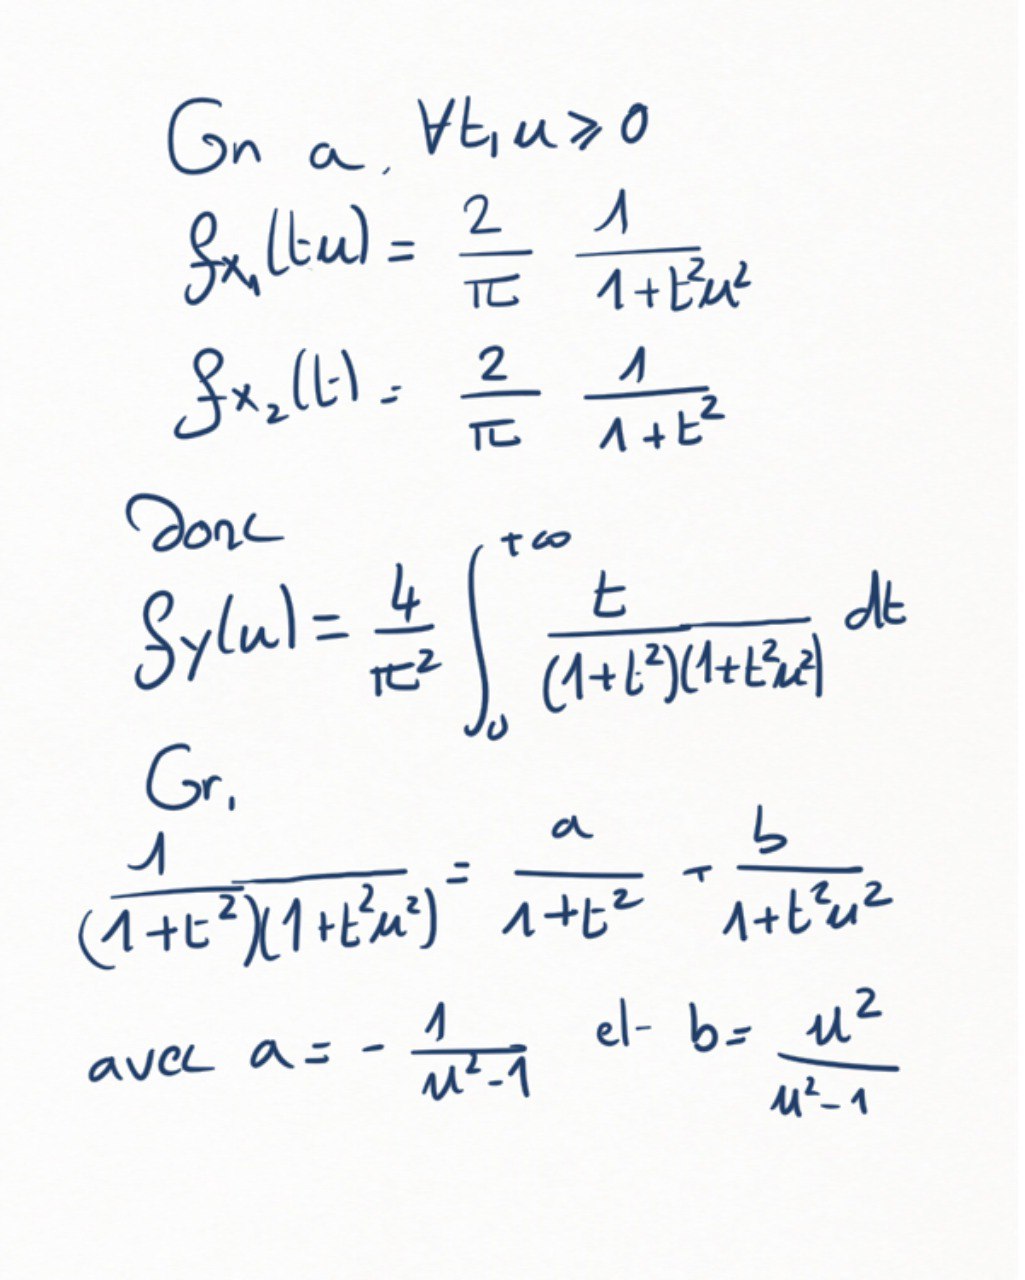 On a, ∀t, u ⩾ 0
f_{X_1}(tu) = \frac{2}{π} \frac{1}{1+t²u²}
f_{X_2}(t) = \frac{2}{π} \frac{1}{1+t²}
Donc
f_Y(u) = \frac{4}{π²} \int_0^{+∞} \frac{t}{(1+t²)(1+t²u²)} dt
Or,
\frac{1}{(1+t²)(1+t²u²)} = \frac{a}{1+t²} + \frac{b}{1+t²u²}
avec a = - \frac{1}{u²-1} et b = \frac{u²}{u²-1}